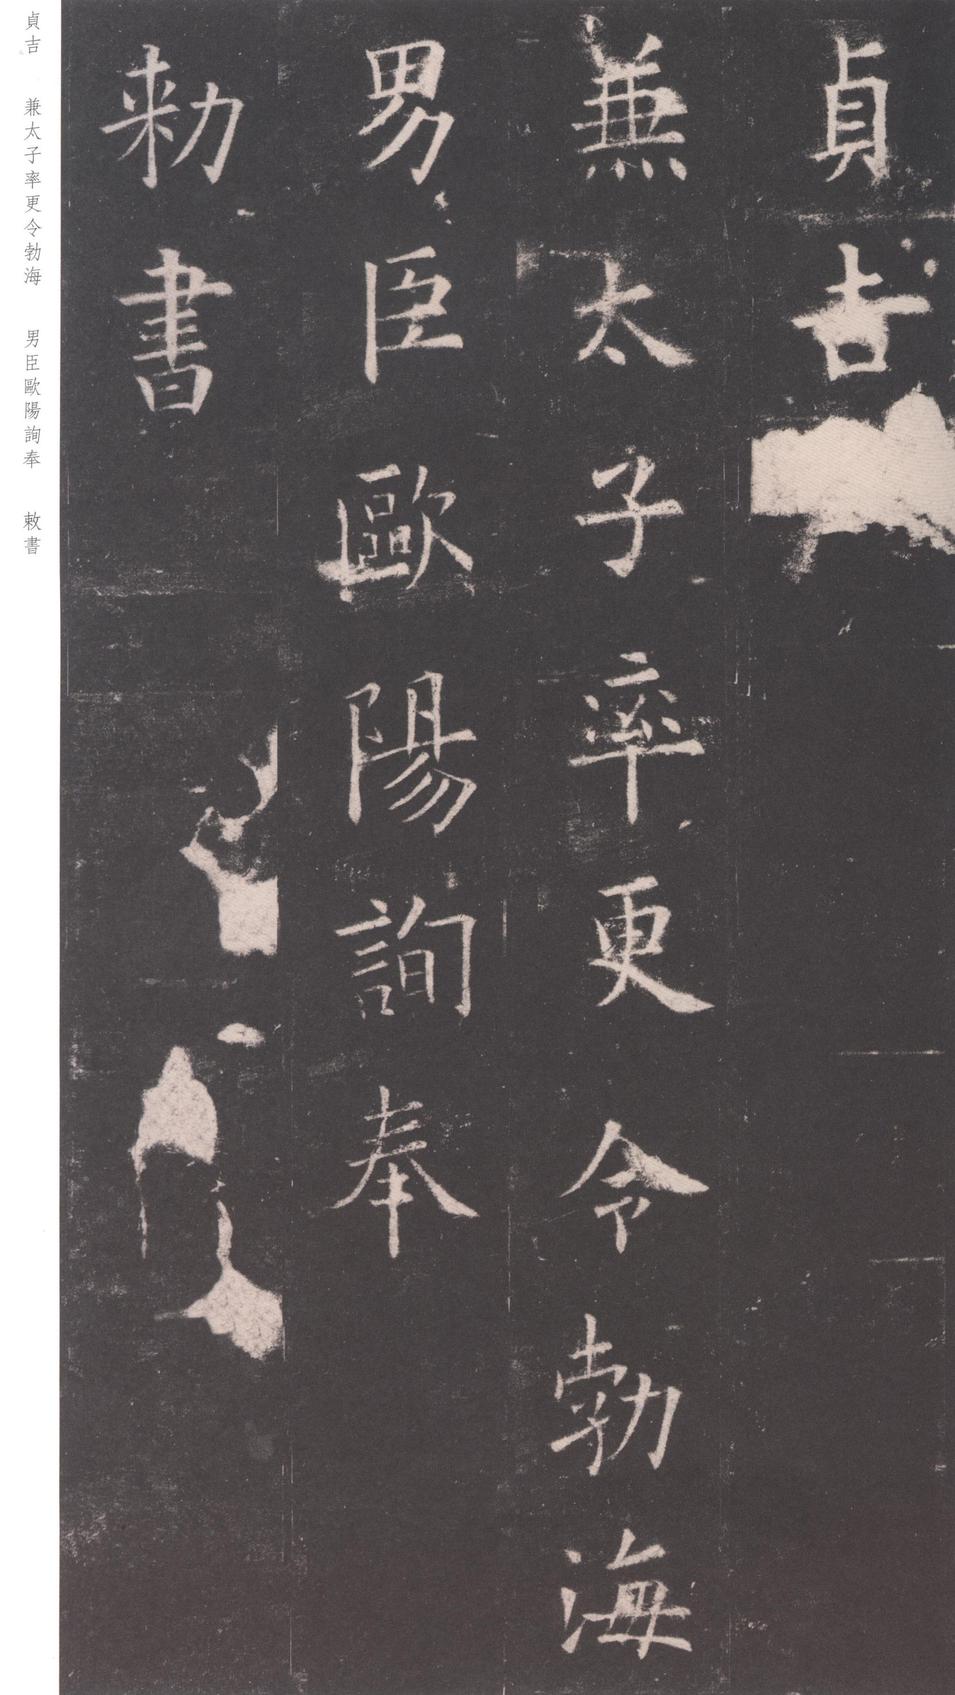 貞吉
兼太子率更令勃海
男臣歐陽詢奉
勑書
貞吉 兼太子率更令勃海 男臣歐陽詢奉 敕書